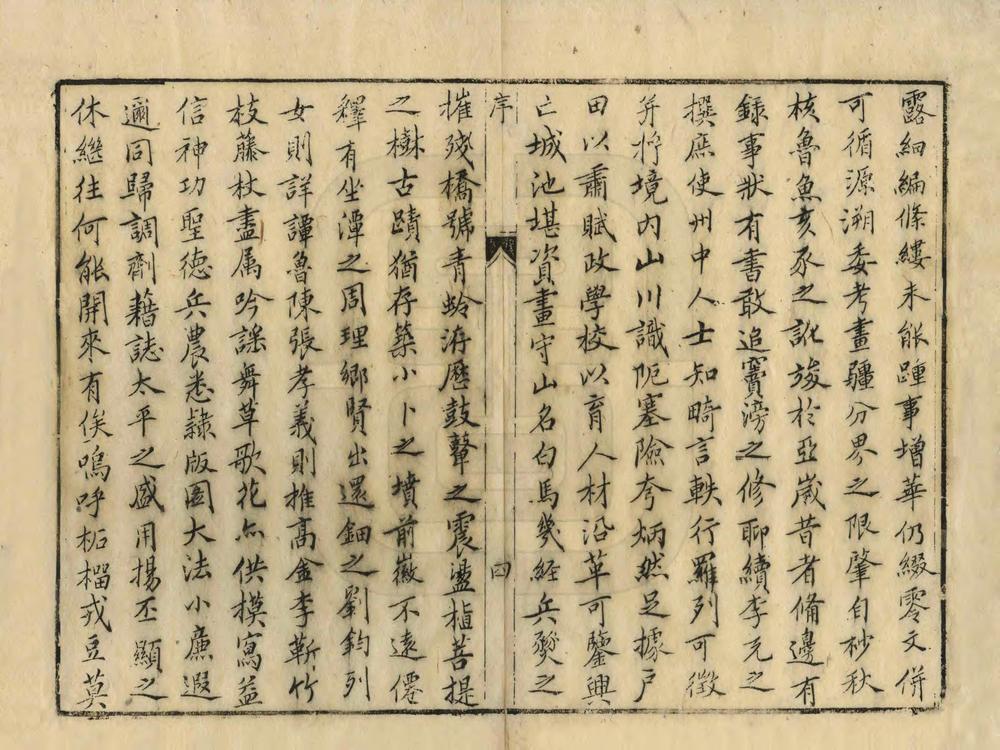 露細編條縷未能踵事增華仍綴零文併
可循源溯委考畫疆分界之限肇自杪秋
核魯魚亥豕之訛竣於亞歲昔者備邊有
錄事狀有書敢追竇滂之修聊續李元之
撰庶使州中人士知畸言軼行羅列可徵
并將境內山川識阨塞險夸炳然足據戶
田以肅賦政學校以育人材沿革可鑒興
亡城池堪資畫守山名白馬幾經兵燹之
序
四
摧殘橋號青蛉洊歷鼓鼙之震盪植菩提
之樹古蹟猶存築小卜之墳前徽不遠僊
釋有坐潭之周理鄉賢出還鈿之劉鈞列
女則詳譚魯陳張孝義則推高金李蘄竹
枝藤杖盡属吟謡舞草歌花亦供模寫益
信神功聖德兵農悉隸版圖大法小廉遐
邇同歸調劑藉誌太平之盛用揚丕顯之
休繼往何能開來有俟嗚呼柘榴戎豆莫